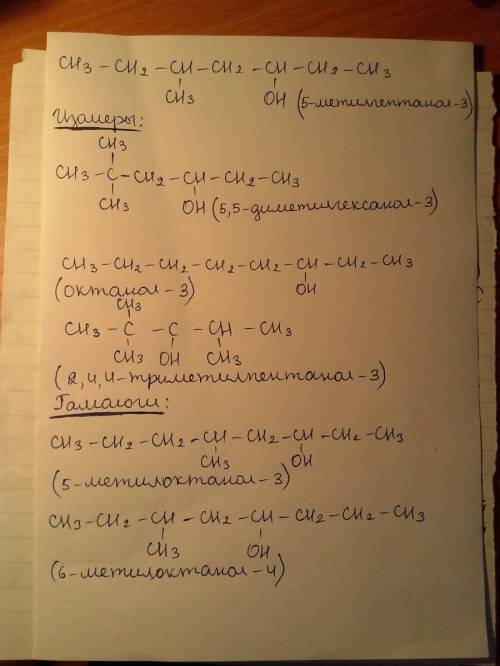 CH3 – CH2 – CH – CH2 – CH – CH2 – CH3
CH3 OH (5-метилгептанол-3)
Изамеры:
CH3
CH3 – C – CH2 – CH – CH2 – CH3
CH3 OH (5,5-диметилгексанол-3)
CH3 – CH2 – CH2 – CH2 – CH2 – CH – CH2 – CH3
(октанол-3) OH
CH3
CH3 – C – C – CH – CH3
CH3 OH CH3
(2,4,4-триметилпентанол-3)
Гамалоги:
CH3 – CH2 – CH2 – CH – CH2 – CH – CH2 – CH3
CH3 OH
(5-метилоктанол-3)
CH3 – CH2 – CH – CH2 – CH – CH2 – CH2 – CH3
CH3 OH
(6-метилоктанол-4)